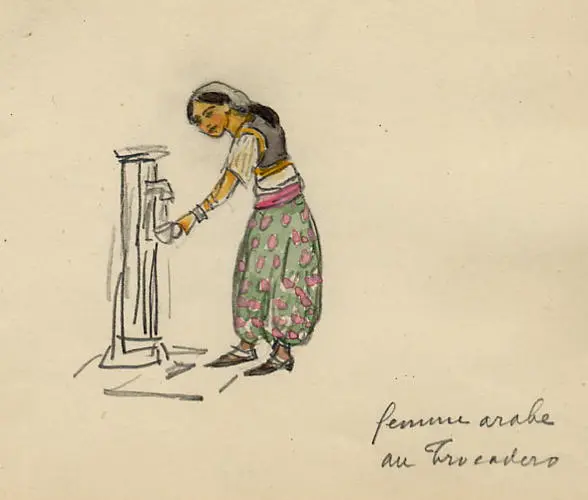 femme arabe
au Trocadero